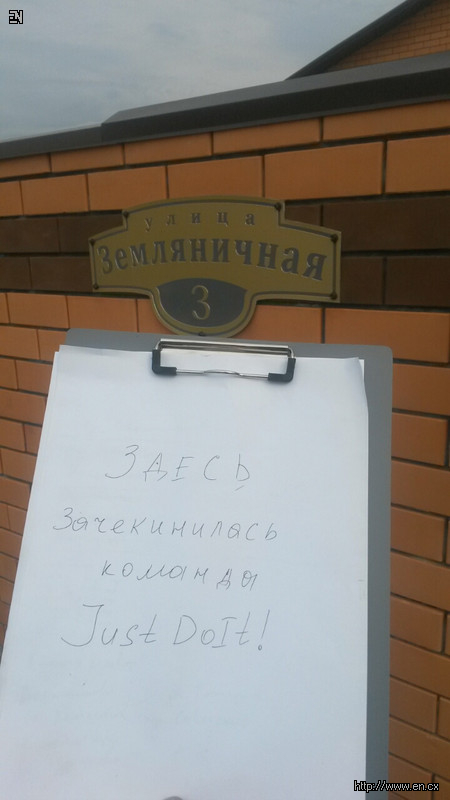 EN
улица
Земляничная
3
ЗДЕСЬ
Зачекинилась
команды
Just DoIt!
http://www.en.cx